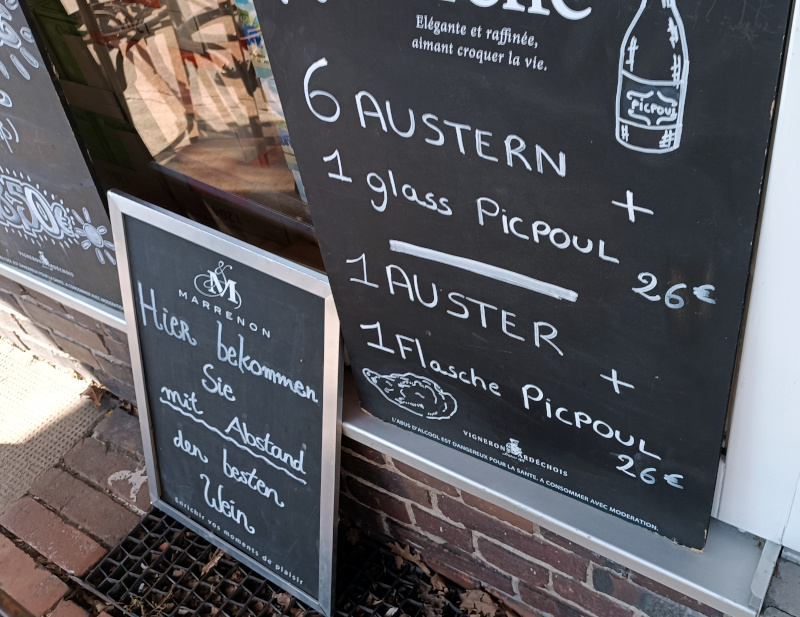 Élégante et raffinée,
aimant croquer la vie.
PICPOUL
6 AUSTERN
+
1 glass PICPOUL
26€
1 AUSTER
+
1 Flasche PICPOUL
26€
VIGNERONS ARDÉCHOIS
L'ABUS D'ALCOOL EST DANGEREUX POUR LA SANTÉ, A CONSOMMER AVEC MODERATION.
&
M
MARRENON
Hier bekommen
Sie
mit Abstand
den besten
Wein
Enrichir vos moments de plaisir